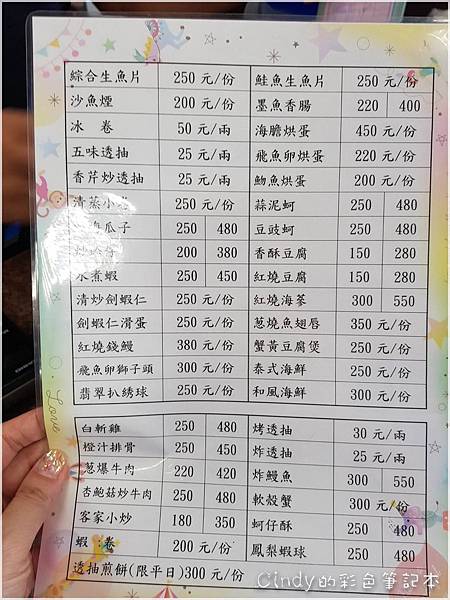 綜合生魚片 250 元/份 鮭魚生魚片 250 元/份
沙魚煙 200 元/份 墨魚香腸 220 400
冰 卷 50 元/兩 海膽烘蛋 450 元/份
五味透抽 25 元/兩 飛魚卵烘蛋 220 元/份
香芹炒透抽 25 元/兩 魩魚烘蛋 200 元/份
清蒸小 250 元/份 蒜泥蚵 250 480
瓜子 250 480 豆豉蚵 250 480
200 380 香酥豆腐 150 280
水煮蝦 250 450 紅燒豆腐 150 280
清炒劍蝦仁 250 元/份 紅燒海蔘 300 550
劍蝦仁滑蛋 250 元/份 蔥燒魚翅唇 350 元/份
紅燒錢鰻 380 元/份 蟹黃豆腐煲 250 元/份
飛魚卵獅子頭 300 元/份 泰式海鮮 250 元/份
翡翠扒绣球 250 元/份 和風海鮮 300 元/份
白斬雞 250 480 烤透抽 30 元/兩
橙汁排骨 250 450 炸透抽 25 元/兩
蔥爆牛肉 220 420 炸鰻魚 300 550
杏鮑菇炒牛肉 250 480 軟殼蟹 300 元/份
客家小炒 180 350 蚵仔酥 250 480
蝦 卷 200 元/份 鳳梨蝦球 250 480
透抽煎餅(限平日)300 元/份
Love
Cindy的彩色筆記本